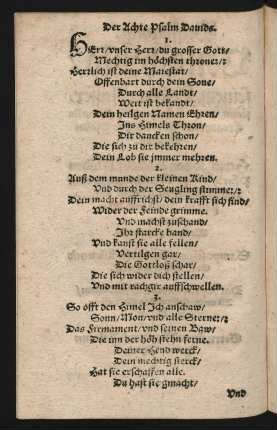 Der Achte Psalm Dauids.
1.
HErr/vnser Herr/du grosser Gott/
Mechtig im höchsten throne:/:
Herrlich ist deine Maiestat/
Offenbart durch dein Sone/
Durch alle Landt/
Weit ist bekandt/
Dein heilgen Namen Ehren/
Ins Himels Thron/
Dir dancken schon/
Die sich zu dir bekehren/
Dein Lob sie jmmer mehren.
2.
Auß dem munde der kleinen Kind/
Vnd durch der Seugling stimme:/:
Dein macht auffrichst/dein krafft sich find/
Wider der Feinde grimme.
Vnd machst zuschand/
Ihr starcke band/
Vnd kanst sie alle fellen/
Vertilgen gar/
Die Gottloß schar/
Die sich wider dich stellen/
Vnd mit rachgir auffschwellen.
3.
So offt den Himel Ich anschaw/
Sonn/Mon/vnd alle Sterne:/:
Das Firmament/vnd seinen Baw/
Die inn der höh stehn ferne.
Deiner Hend werck/
Dein mechtig sterck/
Hat sie erschaffen alle.
Du hast sie gmacht/
Vnd